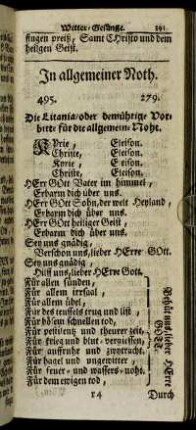 Wetter-Gesänge. 191
singen preiß, Samt Christo und dem
heilgen Geist.
In allgemeiner Noth.
495. 279.
Die Litania/oder demühtige Vor-
bitte für die allgemeine Noht.
KYrie, Eleison.
Christe, Eleison.
Kyrie, Eleison.
Christe, Eleison.
HErr GOtt Vater im himmel,
Erbarm dich über uns.
HErr GOtt Sohn, der welt Heyland,
Erbarm dich über uns.
HErr GOtt heiliger Geist,
Erbarm dich über uns.
Sey uns gnädig,
Verschon uns, lieber HErre GOtt.
Sey uns gnädig,
Hilff uns, lieber HErre Gott.
Für allen sünden,
Für allem irrsaal,
Für allem übel,
Für des teuffels trug und list,
Für bösem schnellen tod,
Für pestilentz und theurer zeit,
Für krieg und blut-vergiessen,
Für auffruhr und zwytracht,
Für hagel und ungewitter
Für feuer- und wassers-noht.
Für dem ewigen tod,
Behüt uns, lieber HErre
GOtt.
Durch